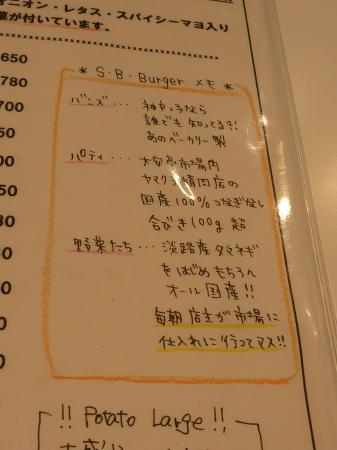 オニオン・レタス・スパイシーマヨ入り
菜が付いています。
* S・B・Burger メモ *
バンズ・・・ 神戸っ子なら
誰でも知ってる?!
あのベーカリー製
パティ・・・・ 大安亭市場内
ヤマクラ精肉店の
国産100%つなぎなし
合びき100g超
野菜たち・・・ 淡路産タマネギ
をはじめもちろん
オール国産!!
毎朝店主が市場に
仕入れに行ってマス!!
650
780
700
!! Potato Large !!